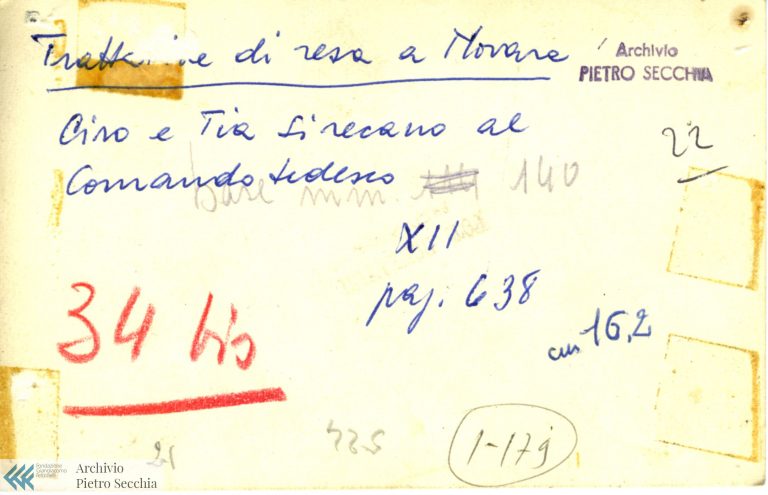 Trattative di resa a Novara
Archivio
PIETRO SECCHIA
Ciro e Tia si recano al
Comando tedesco
22
base mm. 140
XII
pag. 638
34 bis
cm 16,2
21
225
1-179
Fondazione
Giangiacomo
Feltrinelli
Archivio
Pietro Secchia